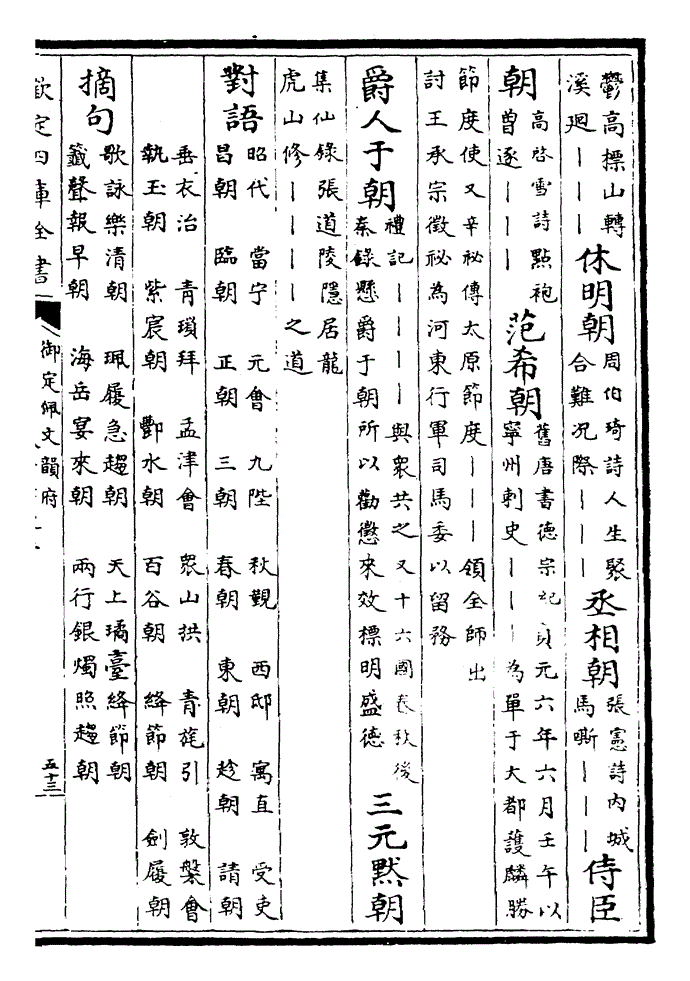 鬱高標山轉
溪廻｜｜｜
休明朝
周伯琦詩人生聚
合難况際｜｜｜
丞相朝
張憲詩内城
馬嘶｜｜｜
侍臣
朝
高啓雪詩點袍
曾逐｜｜｜
范希朝
舊唐書德宗紀貞元六年六月壬午以
寧州刺史｜｜｜為單于大都護麟勝
節度使又辛祕傳太原節度｜｜｜領全師出
討王承宗徵祕為河東行軍司馬委以留務
爵人于朝
禮記｜｜｜｜與衆共之又十六國春秋後
秦錄懸爵于朝所以勸懲來效標明盛德
三元黙朝
集仙錄張道陵隱居龍
虎山修｜｜｜｜之道
對語
昭代 當宁 元會 九陛 秋覲 西邸 寓直 受吏
昌朝 臨朝 正朝 三朝 春朝 東朝 趁朝 請朝
垂衣治 青瑣拜 孟津會 衆山拱 青旄引 敦槃會
執玉朝 紫宸朝 酆水朝 百谷朝 絳節朝 劍履朝
摘句
歌詠樂清朝 珮履急趨朝 天上璚臺絳節朝
籟聲報早朝 海岳宴來朝 兩行銀燭照趨朝
欽定四庫全書
御定佩文韻府
五十三